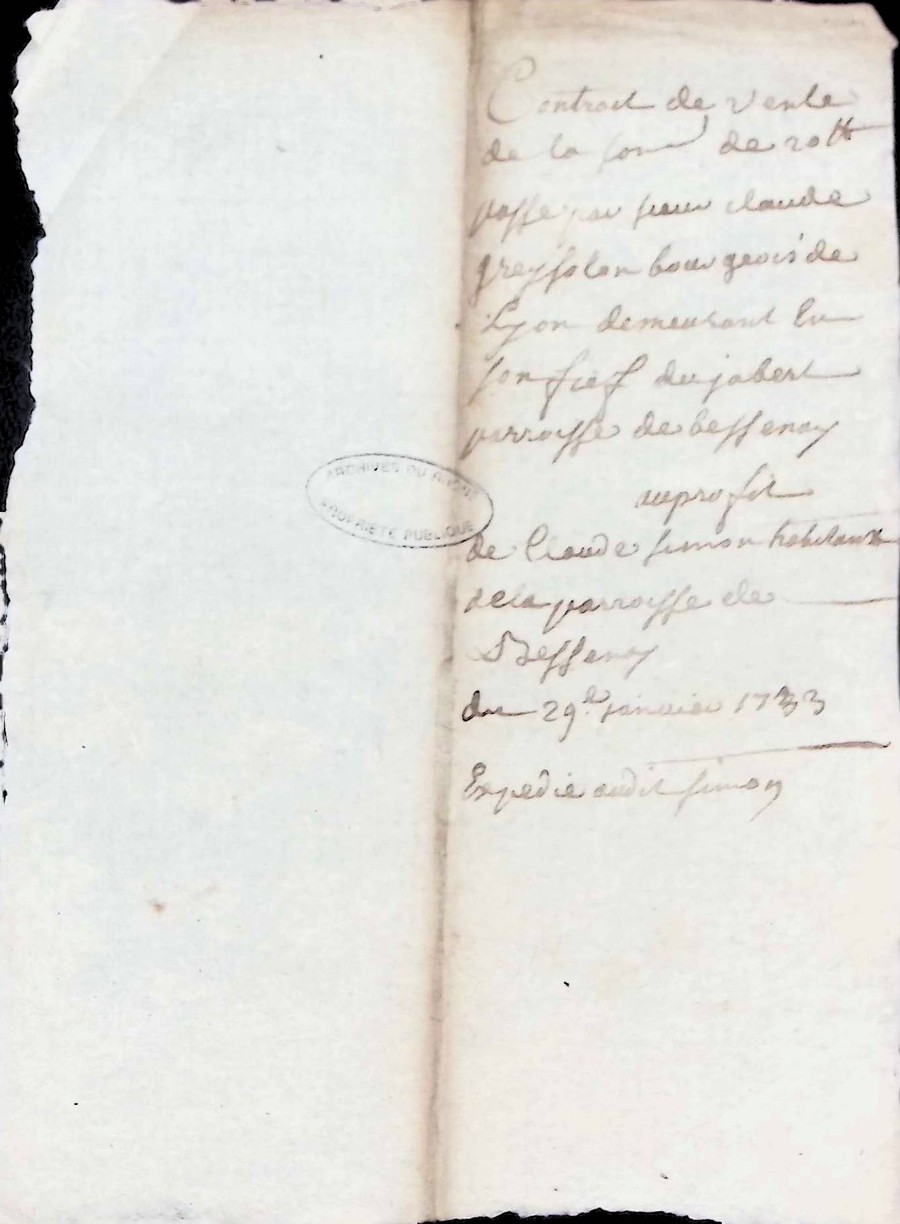 Contract de vente
de la som de 20 ₶
passe par sieur claude
greysolon bourgeois de
Lyon demeurant En
son fief du jabert
parroisse de bessenay
au profit
ARCHIVES DU RHONE
PROPRIETE PUBLIQUE
de Claude simon habitant
de la parroisse de
Bessenay
du 29.e janvier 1733
Expedie audit simon